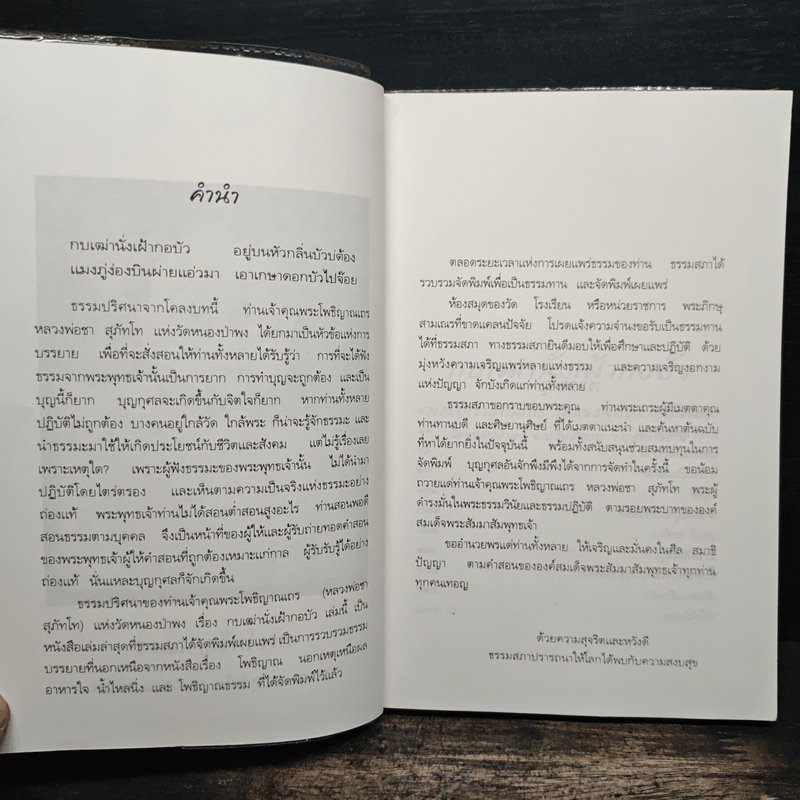 คำนำ
กบเฒ่านั่งเฝ้ากอบัว อยู่บนหัวกลิ่นบัวบ่ต้อง
แมงภู่ง่องบินผ่ายแอ่วมา เอาเกษาดอกบัวไปจ๊อย
ธรรมปริศนาจากโคลงบทนี้ ท่านเจ้าคุณพระโพธิญาณเถร
หลวงพ่อชา สุภัทโท แห่งวัดหนองป่าพง ได้ยกมาเป็นหัวข้อแห่งการ
บรรยาย เพื่อที่จะสั่งสอนให้ท่านทั้งหลายได้รับรู้ว่า : การที่จะได้ฟัง
ธรรมจากพระพุทธเจ้านั้นเป็นการยาก การทำบุญจะถูกต้อง และเป็น
บุญนี้ก็ยาก บุญกุศลจะเกิดขึ้นกับจิตใจก็ยาก หากท่านทั้งหลาย
ปฏิบัติไม่ถูกต้อง บางคนอยู่ใกล้วัด ใกล้พระ ก็น่าจะรู้จักธรรมะ และ
นำธรรมะมาใช้ให้เกิดประโยชน์กับชีวิตและสังคม แต่ไม่รู้เรื่องเลย
เพราะเหตุใด? เพราะผู้ฟังธรรมะของพระพุทธเจ้านั้น ไม่ได้นำมา
ปฏิบัติโดยไตร่ตรอง และเห็นตามความเป็นจริงแห่งธรรมะอย่าง
ถ่องแท้ พระพุทธเจ้าท่านไม่ได้สอนต่ำสอนสูงอะไร ท่านสอนพอดี
สอนธรรมตามบุคคล จึงเป็นหน้าที่ของผู้ให้และผู้รับถ่ายทอดคำสอน
ของพระพุทธเจ้าผู้ให้คำสอนที่ถูกต้องเหมาะแก่กาล ผู้รับรับรู้ได้อย่าง
ถ่องแท้ นั่นแหละบุญกุศลก็จักเกิดขึ้น
ธรรมปริศนาของท่านเจ้าคุณพระโพธิญาณเถร (หลวงพ่อชา
สุภัทโท) แห่งวัดหนองป่าพง เรื่อง กบเฒ่านั่งเฝ้ากอบัว เล่มนี้ เป็น
หนังสือเล่มล่าสุดที่ธรรมสภาได้จัดพิมพ์เผยแพร่ เป็นการรวบรวมธรรม
บรรยายที่นอกเหนือจากหนังสือเรื่อง โพธิญาณ นอกเหตุเหนือผล
อาหารใจ น้ำไหลนิ่ง และ โพธิญาณธรรม ที่ได้จัดพิมพ์ไว้แล้ว
ตลอดระยะเวลาแห่งการเผยแพร่ธรรมของท่าน ธรรมสภาได้
รวบรวมจัดพิมพ์เพื่อเป็นธรรมทาน และจัดพิมพ์เผยแพร่
ห้องสมุดของวัด โรงเรียน หรือหน่วยราชการ พระภิกษุ
สามเณรที่ขาดแคลนปัจจัย โปรดแจ้งความจำนงขอรับเป็นธรรมทาน
ได้ที่ธรรมสภา ทางธรรมสภายินดีมอบให้เพื่อศึกษาและปฏิบัติ ด้วย
มุ่งหวังความเจริญแพร่หลายแห่งธรรม และความเจริญงอกงาม
แห่งปัญญา จักบังเกิดแก่ท่านทั้งหลาย
ธรรมสภาขอกราบขอบพระคุณ ท่านพระเถระผู้มีเมตตาคุณ
ท่านทานบดี และศิษยานุศิษย์ ที่ได้เมตตาแนะนำ และค้นหาต้นฉบับ
ที่หาได้ยากยิ่งในปัจจุบันนี้ พร้อมทั้งสนับสนุนช่วยสมทบทุนในการ
จัดพิมพ์ บุญกุศลอันจักพึงมีพึงได้จากการจัดทำในครั้งนี้ ขอน้อม
ถวายแด่ท่านเจ้าคุณพระโพธิญาณเถร หลวงพ่อชา สุภัทโท พระผู้
ดำรงมั่นในพระธรรมวินัยและธรรมปฏิบัติ ตามรอยพระบาทขององค์
สมเด็จพระสัมมาสัมพุทธเจ้า
ขออำนวยพรแด่ท่านทั้งหลาย ให้เจริญและมั่นคงในศีล สมาธิ
ปัญญา ตามคำสอนขององค์สมเด็จพระสัมมาสัมพุทธเจ้าทุกท่าน
ทุกคนเทอญ
ด้วยความสุจริตและหวังดี
ธรรมสภาปรารถนาให้โลกได้พบกับความสงบสุข